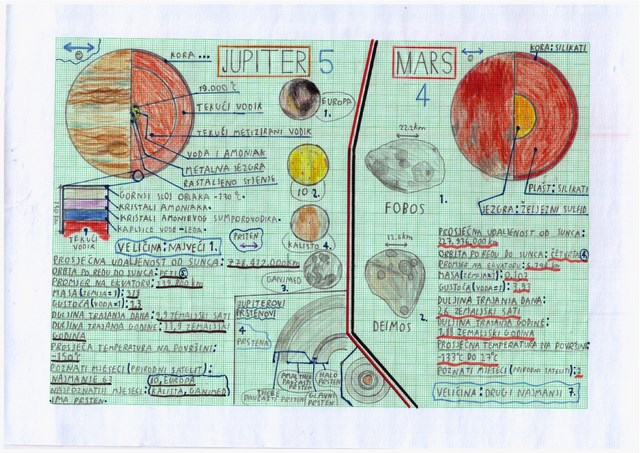 JUPITER 5
KORA...
19.000°C
TEKUĆI VODIK
TEKUĆI METIZIRANI VODIK
VODA I AMONIJAK
METALNA JEZGRA
RASTALJENO STJENJE
GORNJI SLOJ OBLAKA -130°C
KRISTALI AMONIJAKA.
KRISTALI AMONIJEVOG SUMPOROVODIKA.
KAPLJICE VODE-LEDA.
TEKUĆI
VODIK
EUROPA
1.
IO 2.
KALISTO 4.
GANIMED
3.
PRSTEN
VELIČINA: NAJVEĆI 1.
PROSJEČNA UDALJENOST OD SUNCA: 778.412.000km
ORBITA PO REDU DO SUNCA: PETI 5
PROMJER NA EKVATORU:
MASA (ZEMLJA=1): 318
GUSTOĆA (VODA=1): 1,3
DULJINA TRAJANJA DANA: 9,9 ZEMALJSKI SATI
DULJINA TRAJANJE GODINE: 11,9 ZEMALJSKI
GODINA
PROSJEČA TEMPERATURA NA POVRŠINI:
-150°C
POZNATI MJESECI (PRIRODNI SATELIT):
NAJMANJE 63
IO, EUROPA
KALISTA, GANIMED
IMA PRSTEN.
JUPITEROVI
PRSTENOVI
4
PRSTENA
AMALTHE
PAUČASTI
PRSTEN
HALO
PRSTEN
THEBE
PAUČASTI PRSTEN
GLAVNI
PRSTEN
MARS
4
KORA: SILIKATI
PLAŠT: SILIKATI
JEZGRA: ŽELJEZNI SULFID
22.2km
1.
FOBOS
12,6km
2.
DEIMOS
PROSJEČNA UDALJENOST OD SUNCA:
227,936.000km
ORBITA PO REDU DO SUNCA: ČETVRTA 4
PROMJER NA EKVATORU:
MASA (ZEMLJA=1): 0,107
GUSTOĆA (VODA=1): 3,93
DULJINA TRAJANJA DANA:
24 ZEMALJSKI SATI
DULJINA TRAJANJE GODINE:
1,88 ZEMALJSKI GODINA
PROSJEČNA TEMPERATURA NA POVRŠINI:
-133°C DO 27°C
POZNATI MJESECI (PRIRODNI SATELIT): 2
VELIČINA: DRUGI NAJMANJI 7.